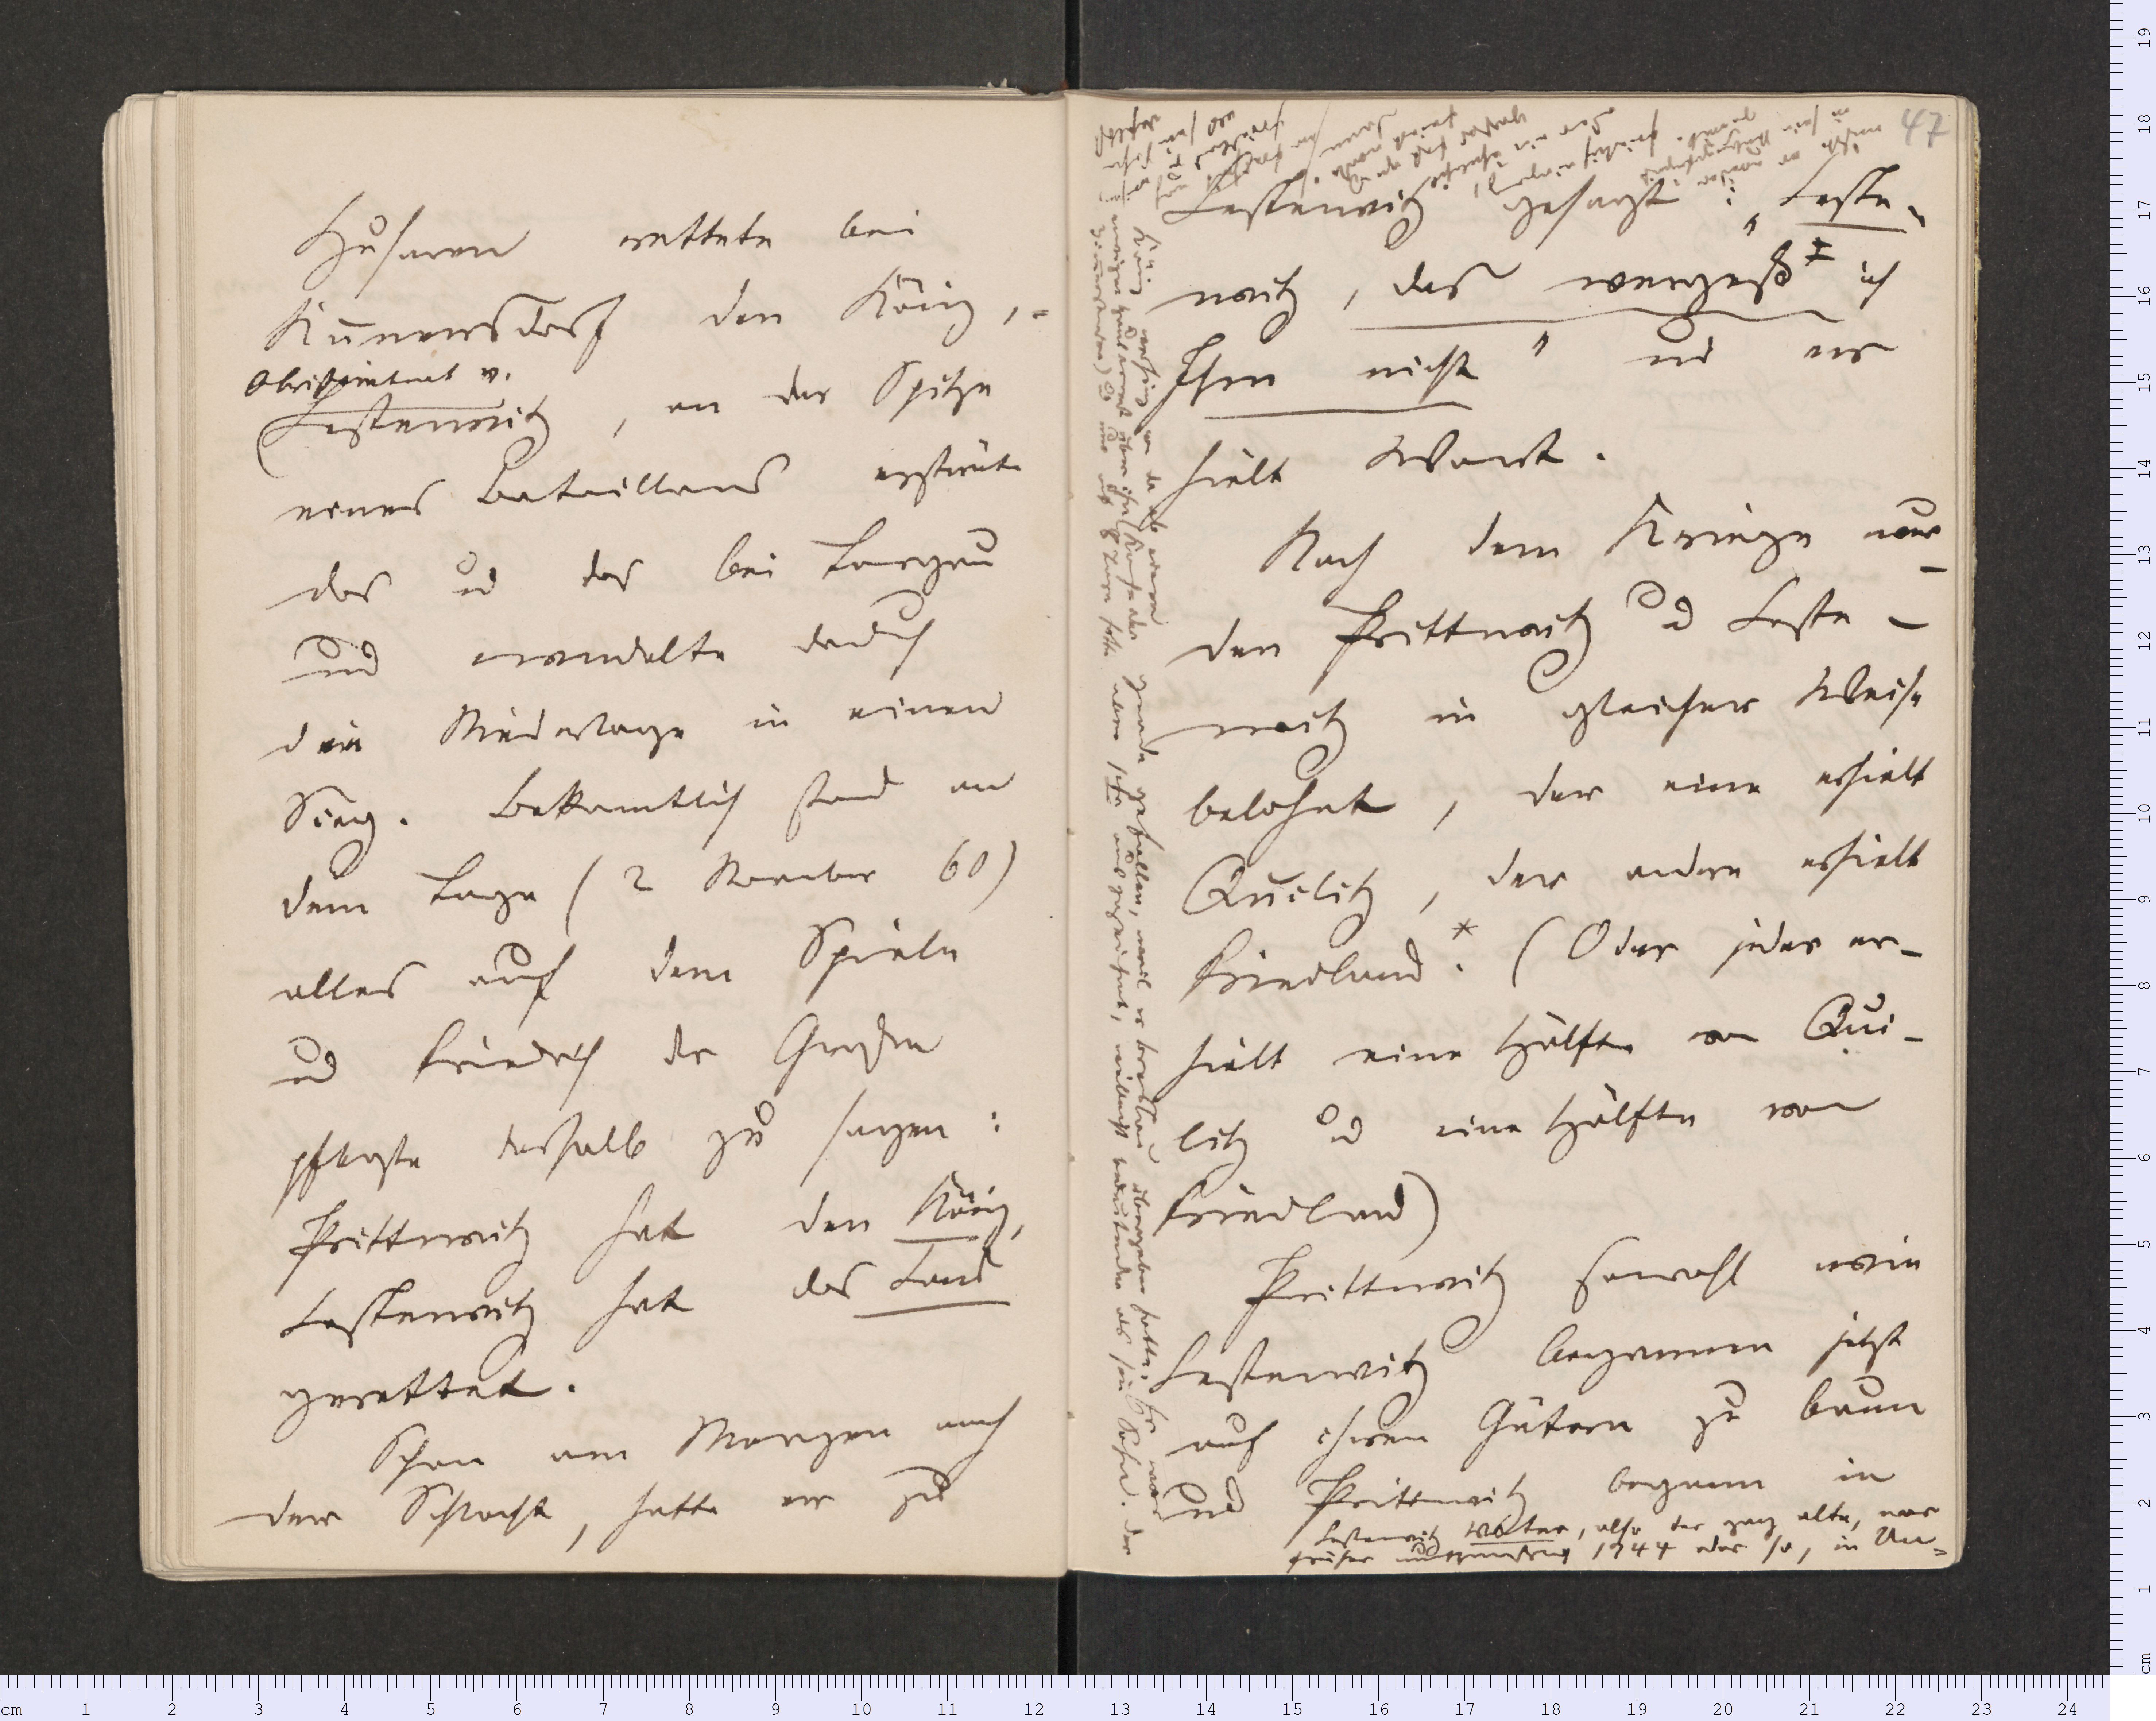 Husaren rettete bei
Kunersdorf den König,-
Obristlieutnant v.
Lestewitz, an der Spitze
eines Bataillons erstürmte
das und das bei Torgau
und wandelte dadurch
die Niederlage in einen
Sieg. Bekanntlich stand an
dem Tage (2 November 60)
alles auf dem Spiele
und Friedrich der Große
pflegte deshalb zu sagen:
Prittwitz hat den König,
Lestewitz hat das Land
gerettet.
Schon am Morgen nach
der Schlacht, hatte er zu
47
Lestewitz gesagt: „Leste-
witz, das vergeß ich
Ihm nicht" und er
hielt Wort.
Nach dem Kriege wur-
den Prittwitz und Leste-
witz in gleicher Weise
belohnt, der eine erhielt
Quilitz, der andre erhielt
Friedland.* (Oder jeder er-
hielt eine Hälfte von Qui-
litz und eine Hälfte von
Friedland)
Prittwitz sowohl wie
Lestewitz begannen jetzt
auf ihren Gütern zu baun
und Prittwitz begann in
Lestewitz Vater, also der ganz alte, war
früher 1744 oder so, in Un-
gnade gefallen, weil er Breslau übergeben hatte. Er war